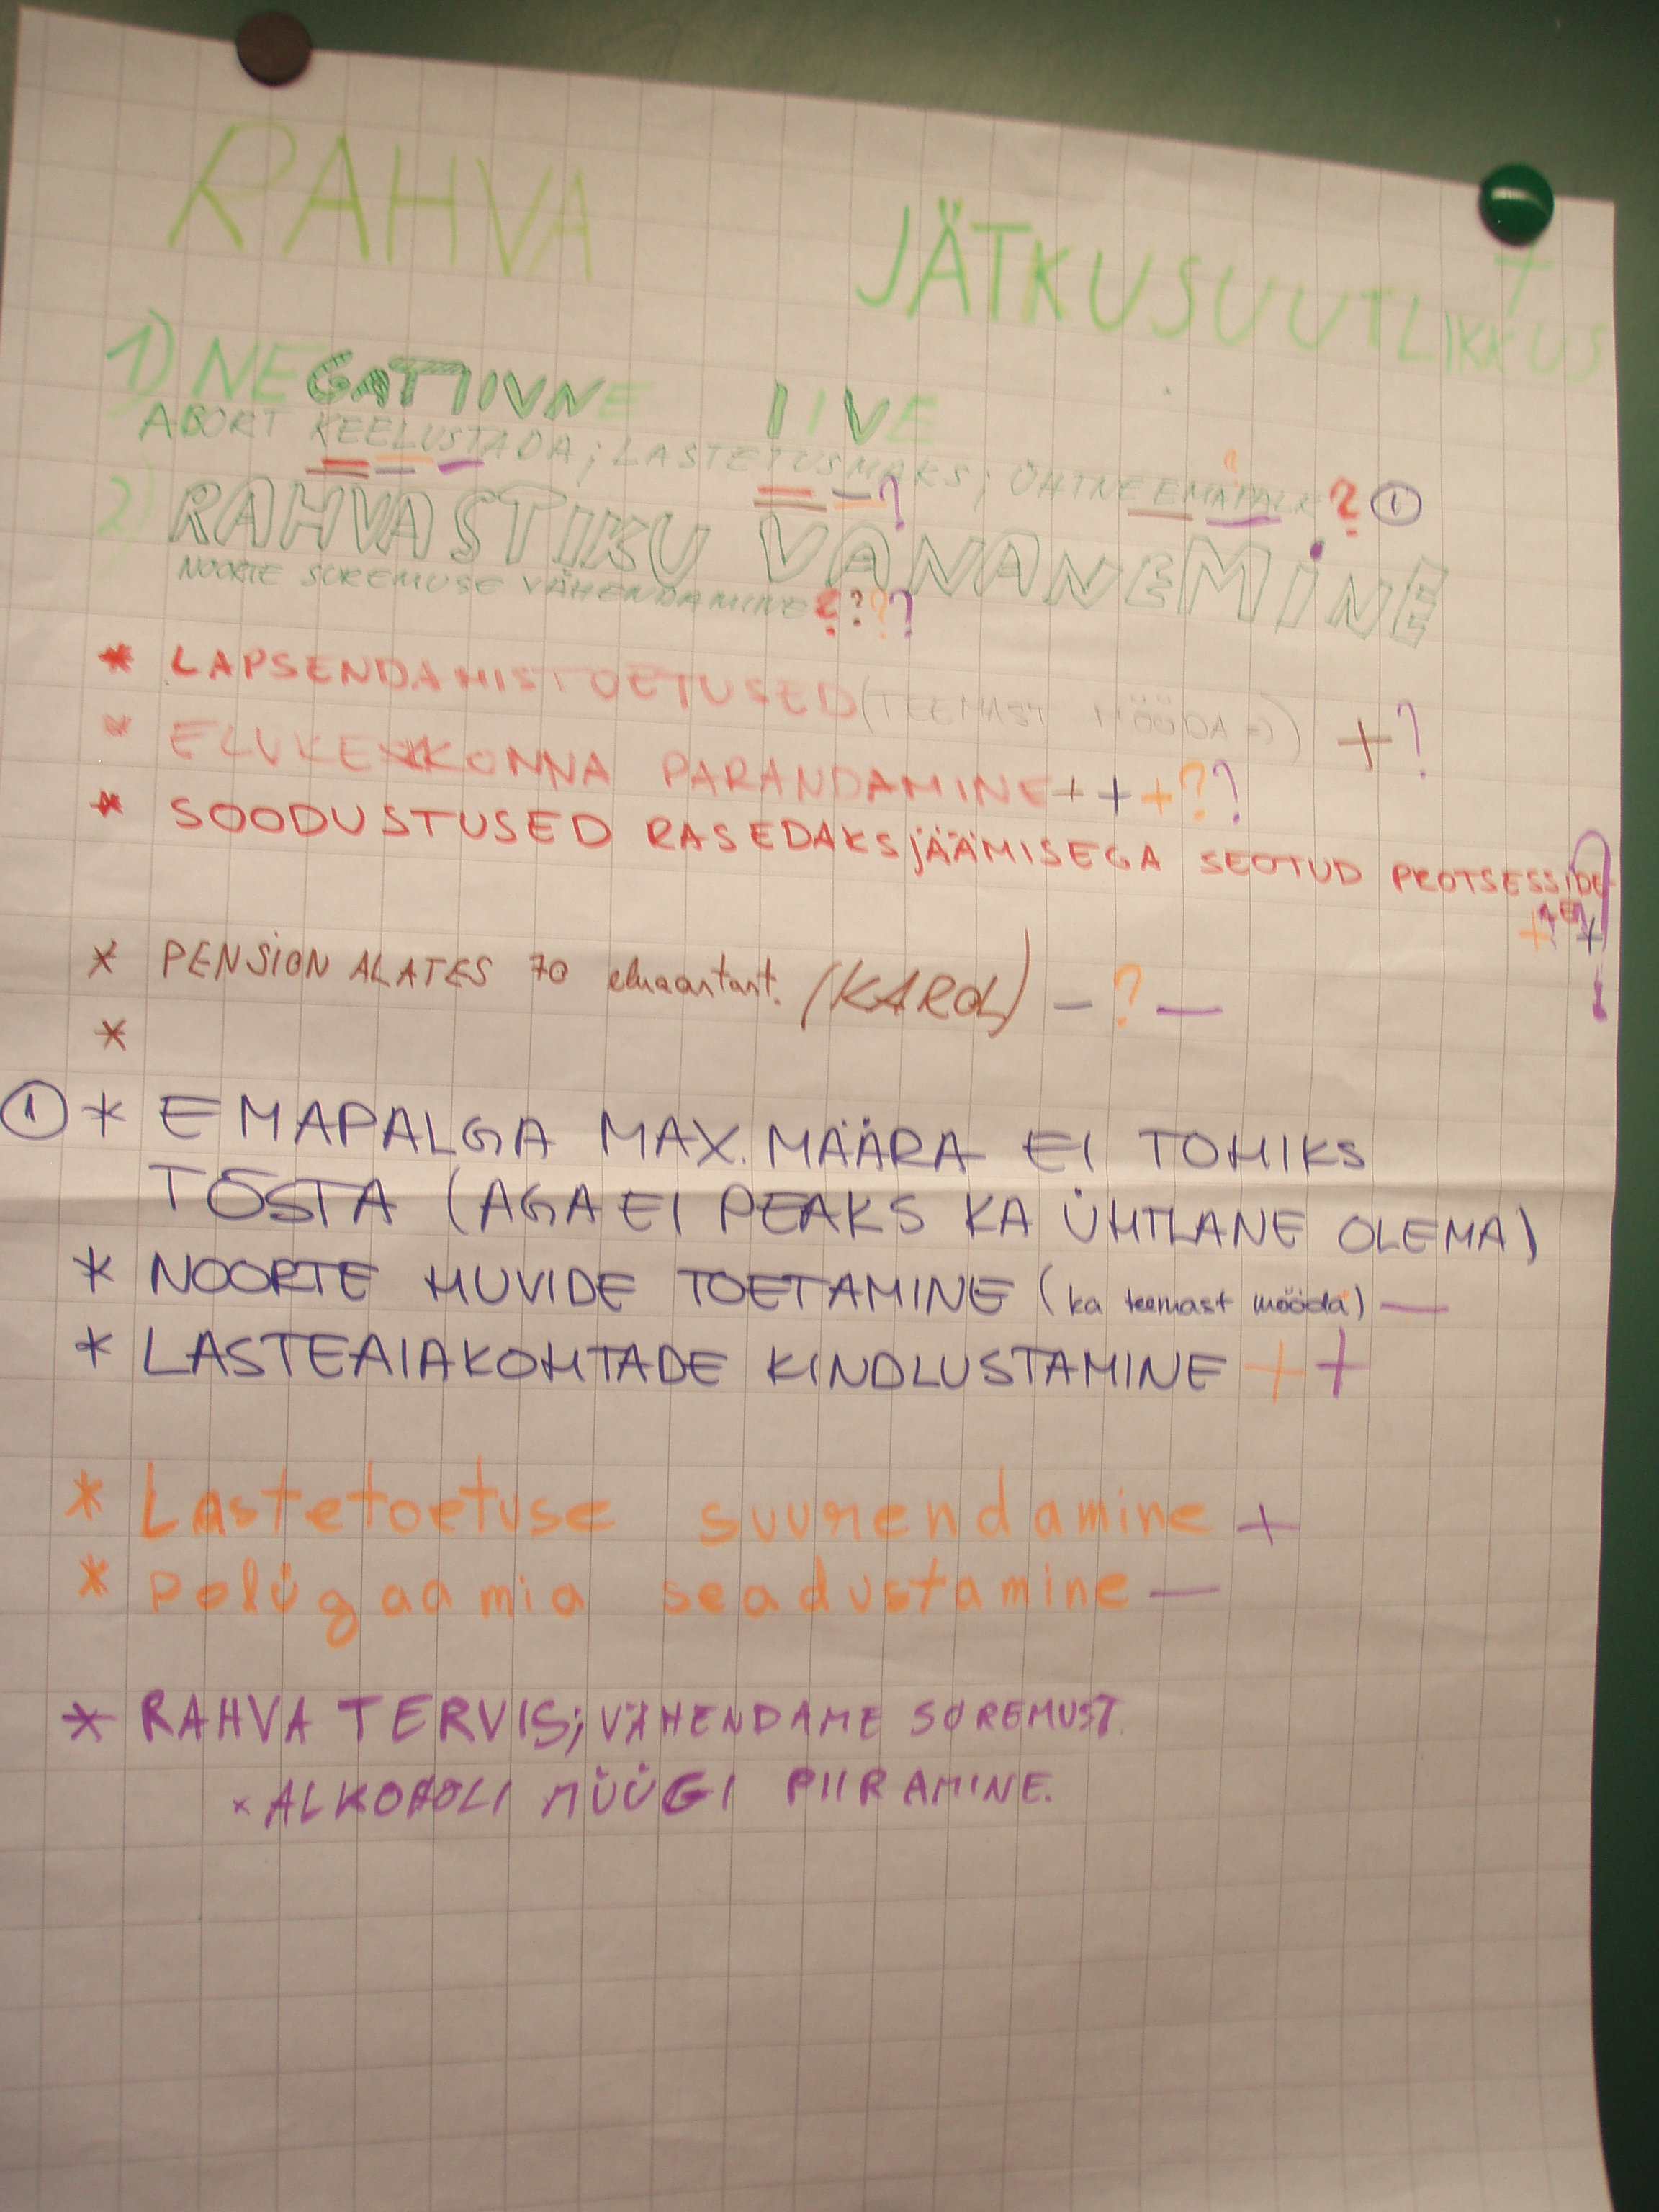 RAHVA JÄTKUSUUTLIKKUS +
1) NEGATIIVNE IIVE
ABORT KEELUSTADA; LASTETUSMAKS; ÜHTNE EMAPALK ? ? ①
— — — — — — — ? — —
2) RAHVASTIKU VANANEMINE
NOORTE SUREMUSE VÄHENDAMINE ? ? ? ?
* LAPSENDAMISTOETUSED (TEEMAST MÖÖDA =)) + ?
* ELUKESKKONNA PARANDAMINE + + + ? ?
* SOODUSTUSED RASEDAKSJÄÄMISEGA SEOTUD PROTSESSIDE
+ +
* PENSION ALATES 70 eluaastast. (KAROL) — ? —
*
① * EMAPALGA MAX. MÄÄRA EI TOHIKS
TÕSTA (AGA EI PEAKS KA ÜHTLANE OLEMA)
* NOORTE HUVIDE TOETAMINE (ka teemast mööda) —
* LASTEAIAKOHTADE KINDLUSTAMINE + +
* Lastetoetuse suurendamine +
* polügaamia seadustamine —
* RAHVA TERVIS; VÄHENDAME SUREMUST
× ALKOHOLI MÜÜGI PIIRAMINE.